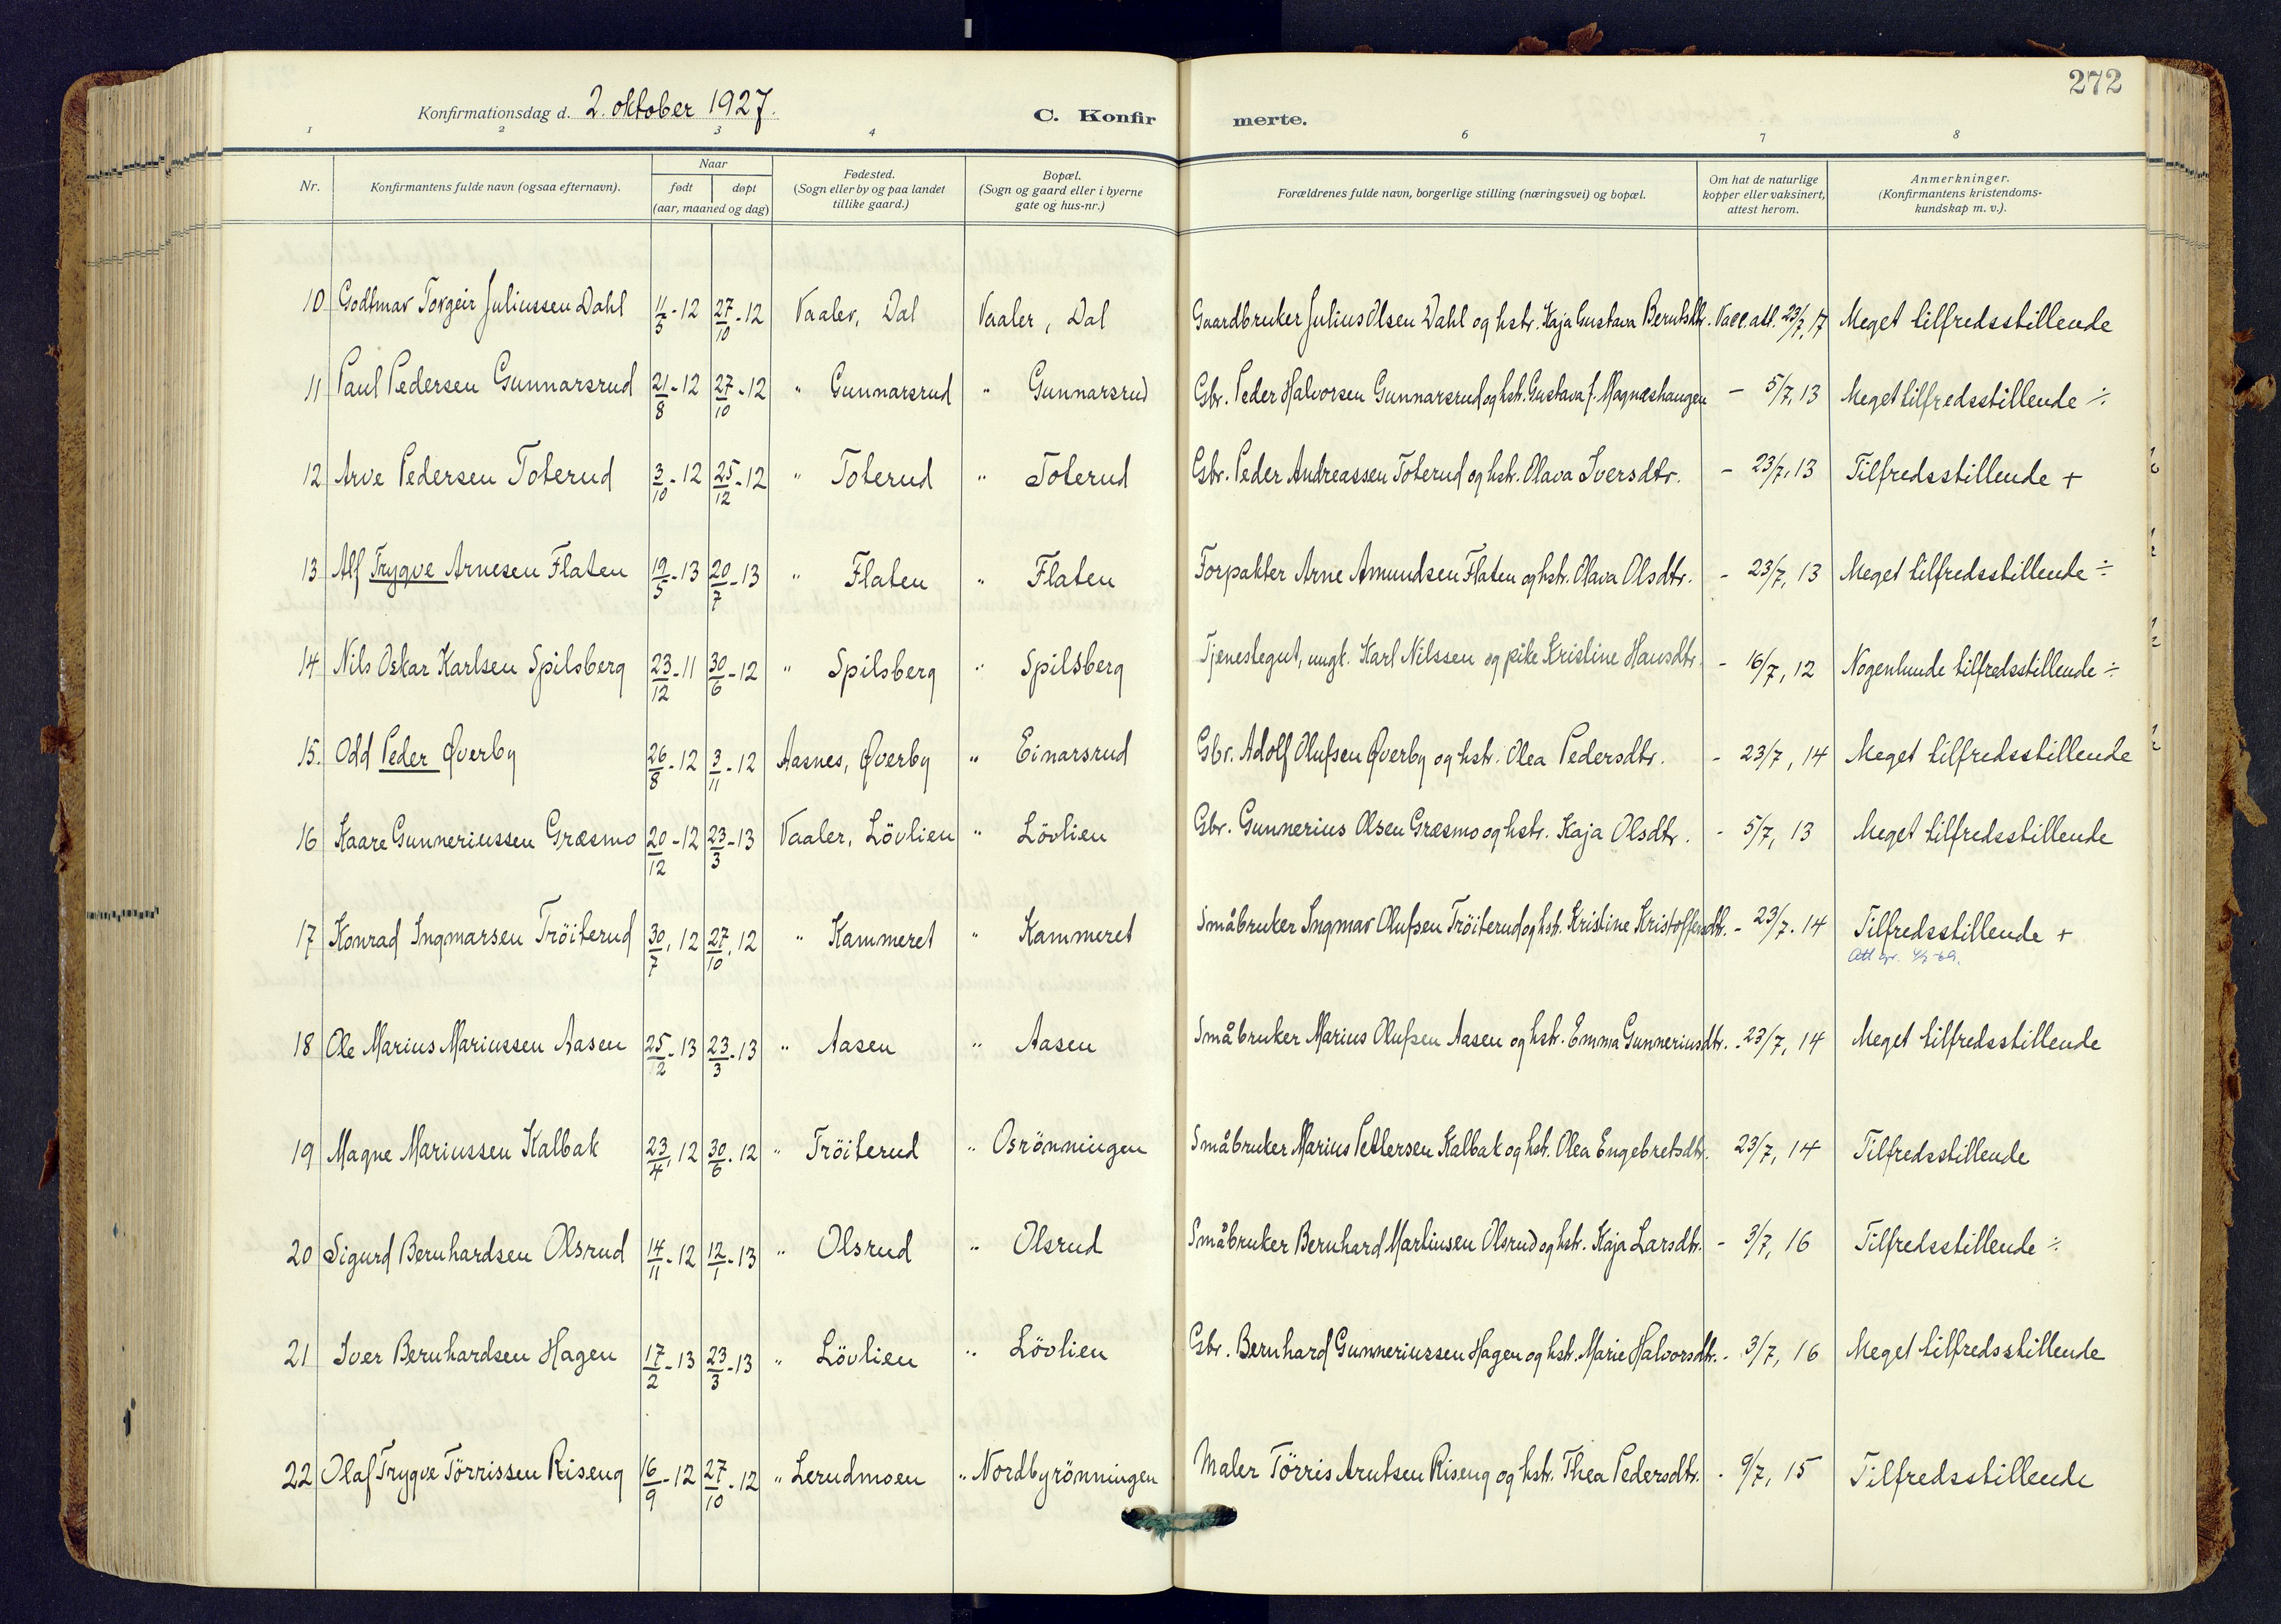 272
Konfirmationsdag d. 2. oktober 1927. C. Konfirmerte.
1 2 3 4 6 7 8
Nr. | Konfirmantens fulde navn (ogsaa efternavn). | Naar født døpt (aar, maaned og dag) | Fødested. (Sogn eller by og paa landet tillike gaard.) | Bopæl. (Sogn og gaard eller i byerne gate og hus-nr.) | Forældrenes fulde navn, borgerlige stilling (næringsvei) og bopæl. | Om hat de naturlige kopper eller vaksinert, attest herom. | Anmerkninger. (Konfirmantens kristendoms-kundskap m. v.).
10 Godtmar Torgeir Juliussen Dahl 11/5-12 27/10-12 Vaaler, Dal Vaaler, Dal Gaardbruker Julius Olsen Dahl og hstr. Kaja Gustava Berntsdtr. Vacc. att. 23/7, 17 Meget tilfredsstillende
11 Paul Pedersen Gunnarsrud 21/8-12 27/10-12 " Gunnarsrud " Gunnarsrud Gbr. Peder Halvorsen Gunnarsrud og hstr. Gustava f. Magneshaugen - 5/7, 13 Meget tilfredsstillende ÷
12 Arve Pedersen Toterud 3/10-12 25/12-12 " Toterud " Toterud Gbr. Peder Andreassen Toterud og hstr. Olava Iversdtr. - 23/7, 13 Tilfredsstillende +
13 Alf Trygve Arnesen Flaten 19/5-13 20/7-13 " Flaten " Flaten Forpakter Arne Amundsen Flaten og hstr. Olava Olsdtr. - 23/7, 13 Meget tilfredsstillende ÷
14 Nils Oskar Karlsen Spilsberg 23/12-11 30/6-12 " Spilsberg " Spilsberg Tjenestegut, ungk. Karl Nilssen og pike Kristine Hansdtr. - 16/7, 12 Nogenlunde tilfredsstillende ÷
15. Odd Peder Øverby 26/8-12 3/11-12 Aasnes, Øverby " Einarsrud Gbr. Adolf Olufsen Øverby og hstr. Olea Pedersdtr. - 23/7, 14 Meget tilfredsstillende
16 Kaare Gunneriussen Græsmo 20/12-12 23/3-13 Vaaler, Lövlien " Lövlien Gbr. Gunnerius Olsen Græsmo og hstr. Kaja Olsdtr. - 5/7, 13 Meget tilfredsstillende
17 Konrad Ingmarsen Tröiterud 30/7, 12 27/10, 12 " Kammeret " Kammeret Småbruker Ingmar Olufsen Tröiterud og hstr. Kristine Kristoffersdtr. - 23/7. 14 Tilfredsstillende +
18 Ole Marius Mariussen Aasen 25/2-13 23/3-13 " Aasen " Aasen Småbruker Marius Olufsen Aasen og hstr. Emma Gunneriusdtr. - 23/7, 14 Meget tilfredsstillende
19 Magne Mariussen Kalbak 23/4, 12 30/6. 12 " Tröiterud " Osrönningen Småbruker Marius Pettersen Kalbak og hst. Olea Engebretsdtr. 23/7, 14 Tilfredsstillende
20 Sigurd Bernhardsen Olsrud 14/11-12 12/1-13 " Olsrud " Olsrud Småbruker Bernhard Martinsen Olsrud og hstr. Kaja Larsdtr. - 3/7, 16 Tilfredsstillende ÷
21 Iver Bernhardsen Hagen 17/2-13 23/3-13 " Lövlien " Lövlien Gbr. Bernhard Gunneriussen Hagen og hst. Marie Halvorsdtr. - 3/7, 16 Meget tilfredsstillende
22 Olaf Trygve Törrissen Riseng 16/9-12 27/10-12 " Lerudmoen " Nordbyrönningen Maler Törris Arntsen Riseng og hstr. Thea Pedersdtr. - 9/7, 15 Tilfredsstillende